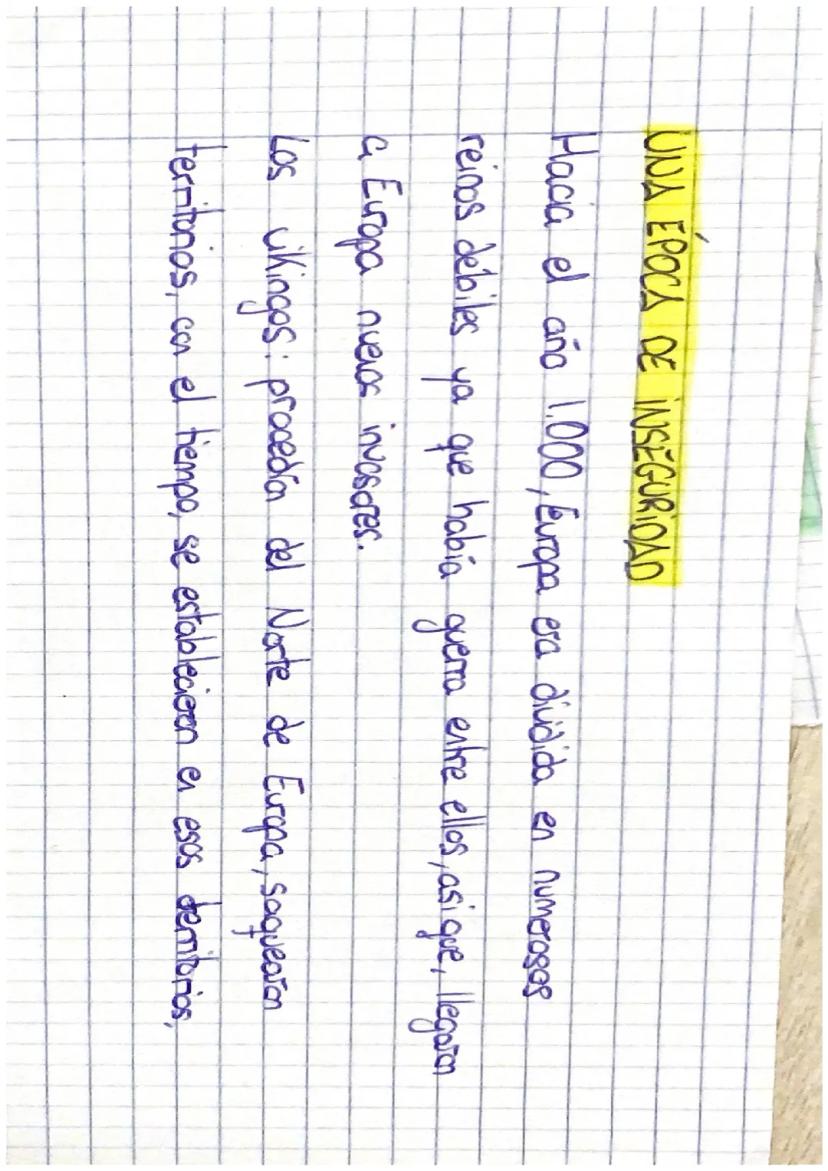 UNA ÉPOCA DE INSEGURIDAD
Hacia el año 1.000, Europa era dividida en numerosos
reinos débiles ya que había guerra entre ellos, asi que, llegaron
a Europa nuevos invasores.
Los vikingos: procedían del Norte de Europa, saquearon
territorios, con el tiempo, se establecieron en esos territorios,